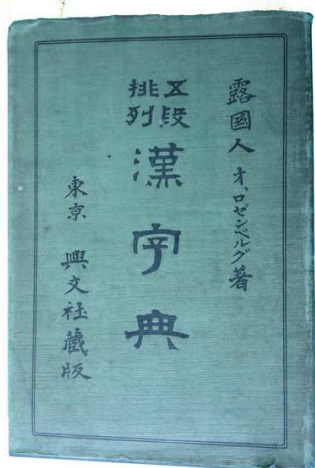 露國人 オ、ロゼンベルグ著
五段
排列
漢字典
東京 興文社蔵版